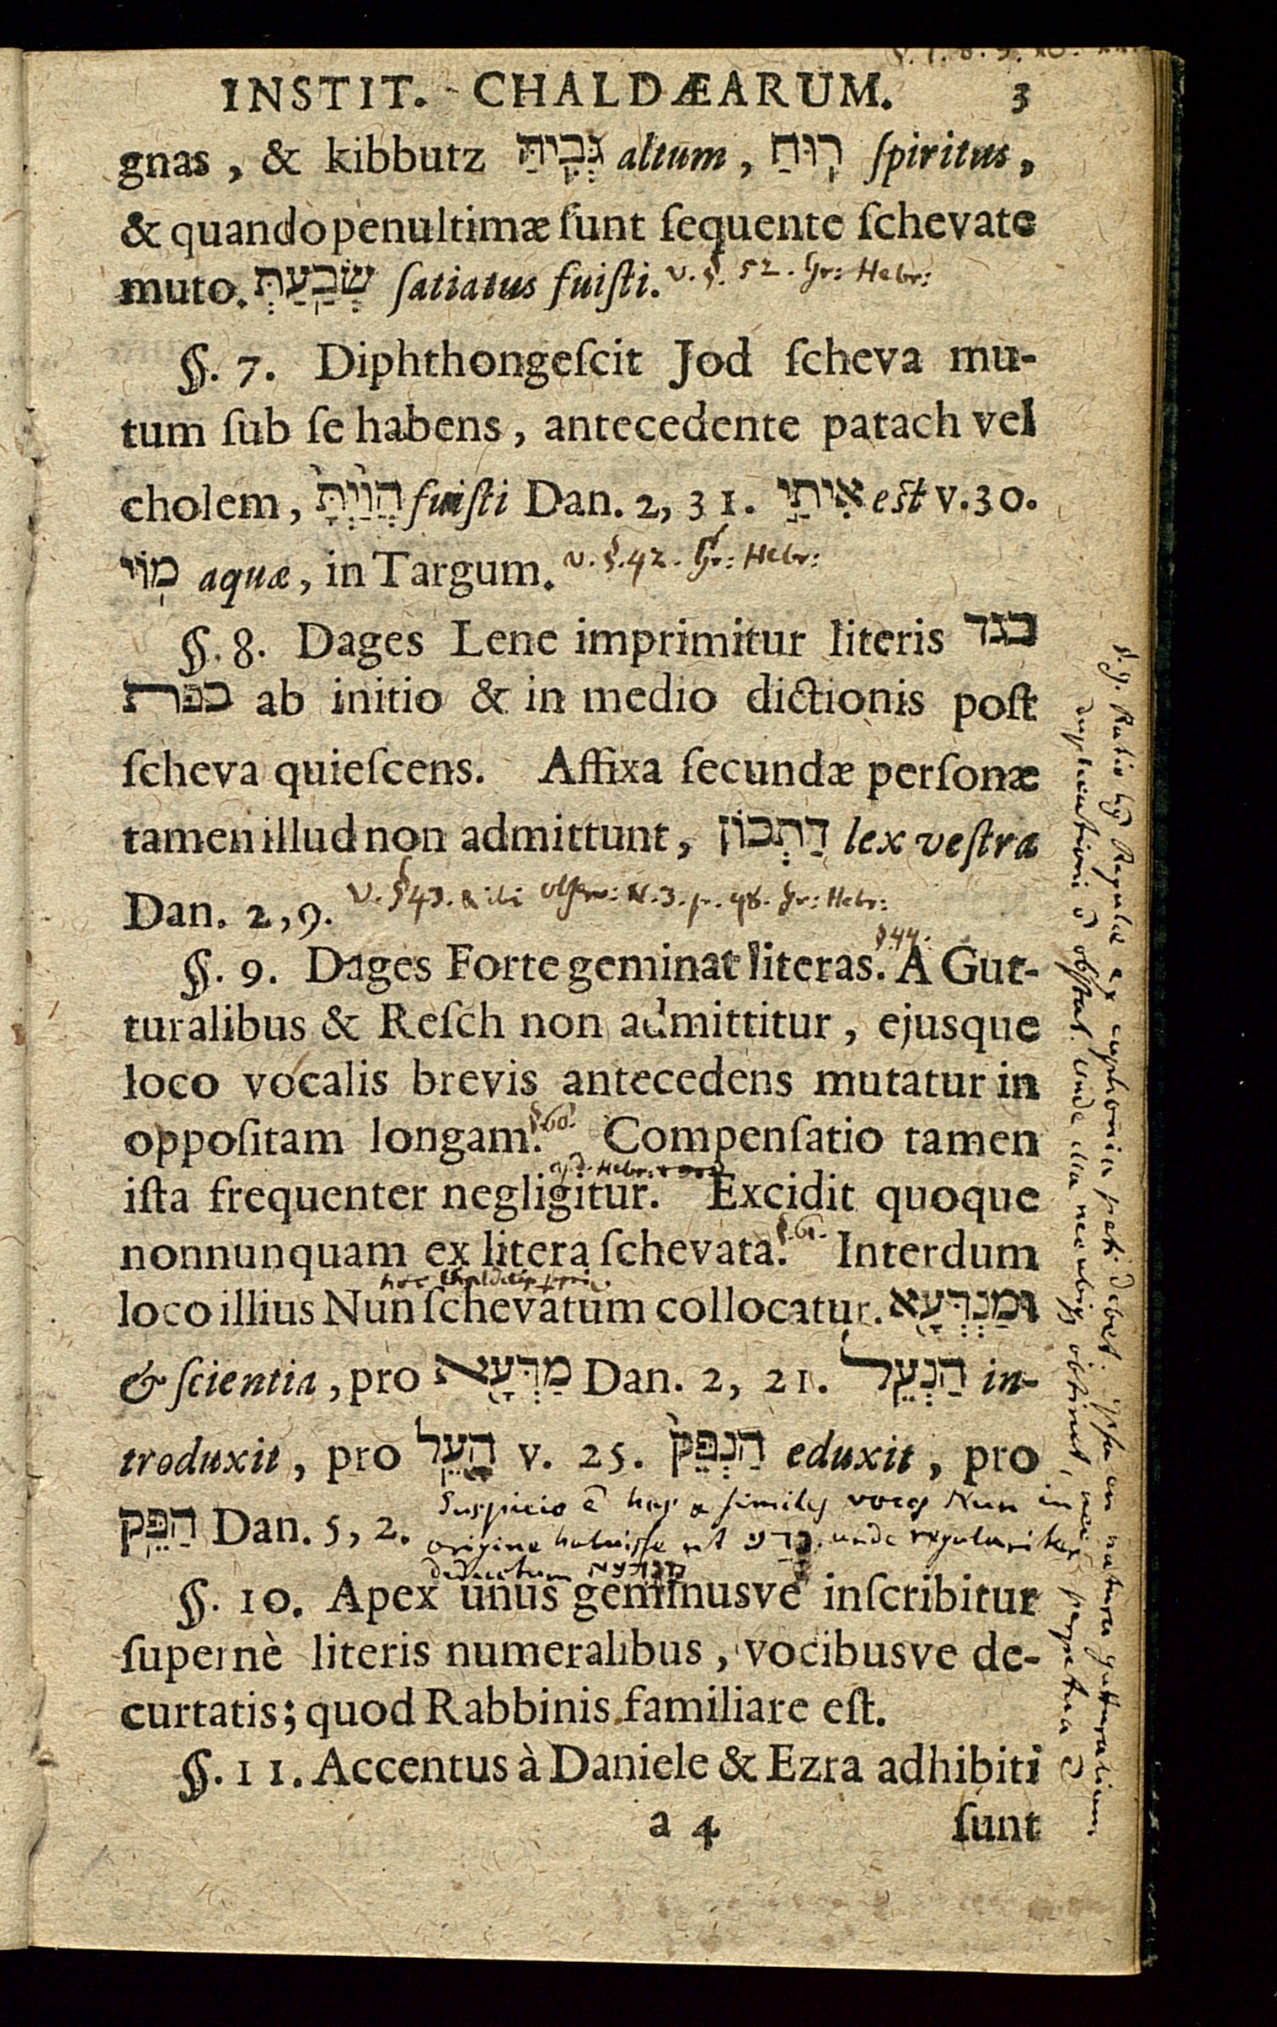 INSTIT. CHALDÆARUM. 3
gnas, & kibbutz גְּבִיהַּ altum, רוּחַ ſpiritus,
& quando penultimæ ſunt ſequente ſchevate
muto. שְׂבַעַתְּ ſatiatus fuiſti. v. §. 52. Gr: Hebr:
§. 7. Diphthongeſcit Jod ſcheva mu-
tum ſub ſe habens, antecedente patach vel
cholem, הֲוַיְתָּ fuiſti Dan. 2, 31. אִיתַי eſt v. 30.
מוֹי aquæ, in Targum. v. §. 42. Gr: Hebr:
§. 8. Dages Lene imprimitur literis בגד
כפת ab initio & in medio dictionis poſt
ſcheva quieſcens. Affixa ſecundæ perſonæ
tamen illud non admittunt, דַתְכוֹן lex veſtra
Dan. 2, 9. v. § 43. & ibi obſerv: N. 3. p. 48. Gr: Hebr:
§ 44.
§. 9. Dages Forte geminat literas. A Gut-
turalibus & Reſch non admittitur, ejusque
loco vocalis brevis antecedens mutatur in
oppoſitam longam. §. 60. Compenſatio tamen
iſta frequenter negligitur. Excidit quoque
nonnunquam ex litera ſchevata. §. 61. Interdum
loco illius Nun ſchevatum collocatur. וּמַנְדְּעָא
& ſcientia, pro מַדְּעָא Dan. 2, 21. הַנְעֵל in-
troduxit, pro הַעֵל v. 25. הַנְפֵּק eduxit, pro
הַפֵּק Dan. 5, 2. Suspicio e has & similes voces Nun in
origine habuisse ut נדע. unde regulariter
deductum מנדעא
§. 10. Apex unus geminusve inſcribitur
ſupernè literis numeralibus, vocibusve de-
curtatis; quod Rabbinis familiare eſt.
§. 11. Accentus à Daniele & Ezra adhibiti
a 4 ſunt
§. 9. Ratio Regulæ ex euphonia peti debet. natura gutturalium
duplicationi obſtat. unde perpetua